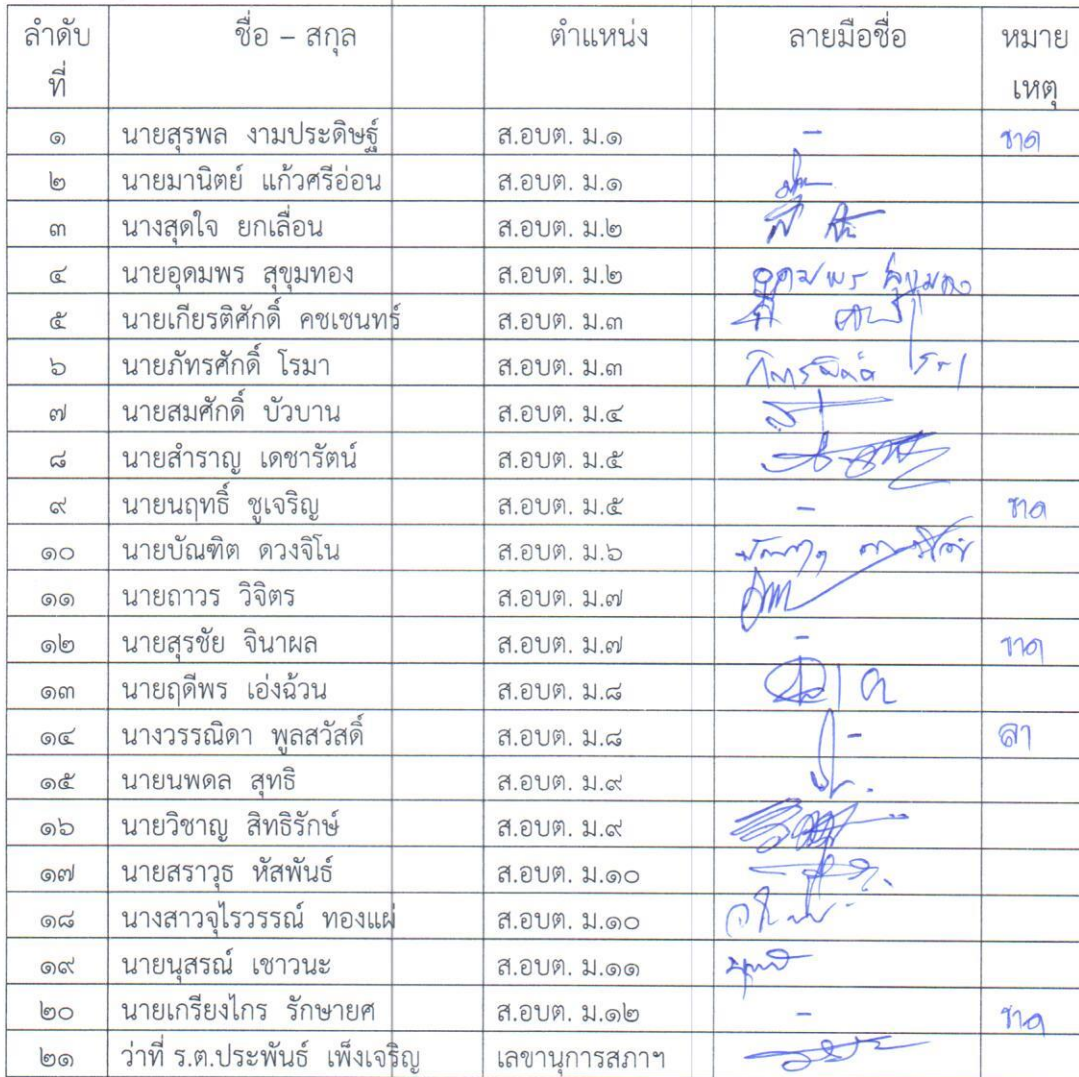 ลำดับที่ ชื่อ – สกุล ตำแหน่ง ลายมือชื่อ หมายเหตุ
๑ นายสุรพล งามประดิษฐ์ ส.อบต. ม.๑ – ขาด
๒ นายมานิตย์ แก้วศรีอ่อน ส.อบต. ม.๑
๓ นางสุดใจ ยกเลื่อน ส.อบต. ม.๒
๔ นายอุดมพร สุขุมทอง ส.อบต. ม.๒ อุดมพร สุขุมทอง
๕ นายเกียรติศักดิ์ คชเชนทร์ ส.อบต. ม.๓
๖ นายภัทรศักดิ์ โรมา ส.อบต. ม.๓ ภัทรศักดิ์ โรมา
๗ นายสมศักดิ์ บัวบาน ส.อบต. ม.๔
๘ นายสำราญ เดชารัตน์ ส.อบต. ม.๕
๙ นายนฤทธิ์ ชูเจริญ ส.อบต. ม.๕ – ขาด
๑๐ นายบัณฑิต ดวงจิโน ส.อบต. ม.๖
๑๑ นายถาวร วิจิตร ส.อบต. ม.๗
๑๒ นายสุรชัย จินาผล ส.อบต. ม.๗ – ขาด
๑๓ นายฤดีพร เอ่งฉ้วน ส.อบต. ม.๘
๑๔ นางวรรณิดา พูลสวัสดิ์ ส.อบต. ม.๘ – ลา
๑๕ นายนพดล สุทธิ ส.อบต. ม.๙
๑๖ นายวิชาญ สิทธิรักษ์ ส.อบต. ม.๙
๑๗ นายสราวุธ หัสพันธ์ ส.อบต. ม.๑๐
๑๘ นางสาวจุไรวรรณ์ ทองแผ่ ส.อบต. ม.๑๐
๑๙ นายนุสรณ์ เชาวนะ ส.อบต. ม.๑๑
๒๐ นายเกรียงไกร รักษายศ ส.อบต. ม.๑๒ – ขาด
๒๑ ว่าที่ ร.ต.ประพันธ์ เพ็งเจริญ เลขานุการสภาฯ